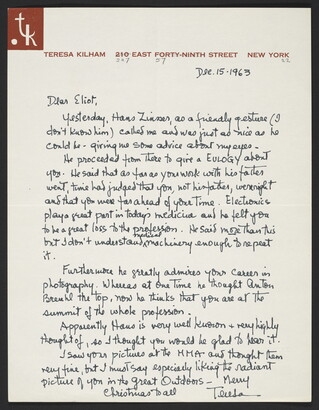 .tk
TERESA KILHAM 210 EAST FORTY-NINTH STREET NEW YORK
227 57 22
Dec. 15 - 1963
Dear Eliot,
Yesterday, Hans Zinsser, as a friendly gesture (I
don't know him) called me and was just as nice as he
could be - giving me some advice about my eyes.
He proceeded from there to give a EULOGY about
you. He said that as far as your work with his father
went, time had judged that you, not his father, were right
and that you were far ahead of your Time. Electronics
plays great part in today's medicine and he felt you
to be a great loss to the profession. He said more than this
but I don't understand medical machinery enough to repeat
it.
Furthermore he greatly admires your career in
photography. Whereas at one time he thought Anton
Bruehl the top, now he thinks that you are at the
summit of the whole profession.
Apparently Hans is very well known & very highly
thought of, so I thought you would be glad to hear it.
I saw your pictures at the MMA and thought them
very fine, but I must say especially liking the radiant
picture of you in the Great Outdoors - Merry
Christmas to all
Teresa